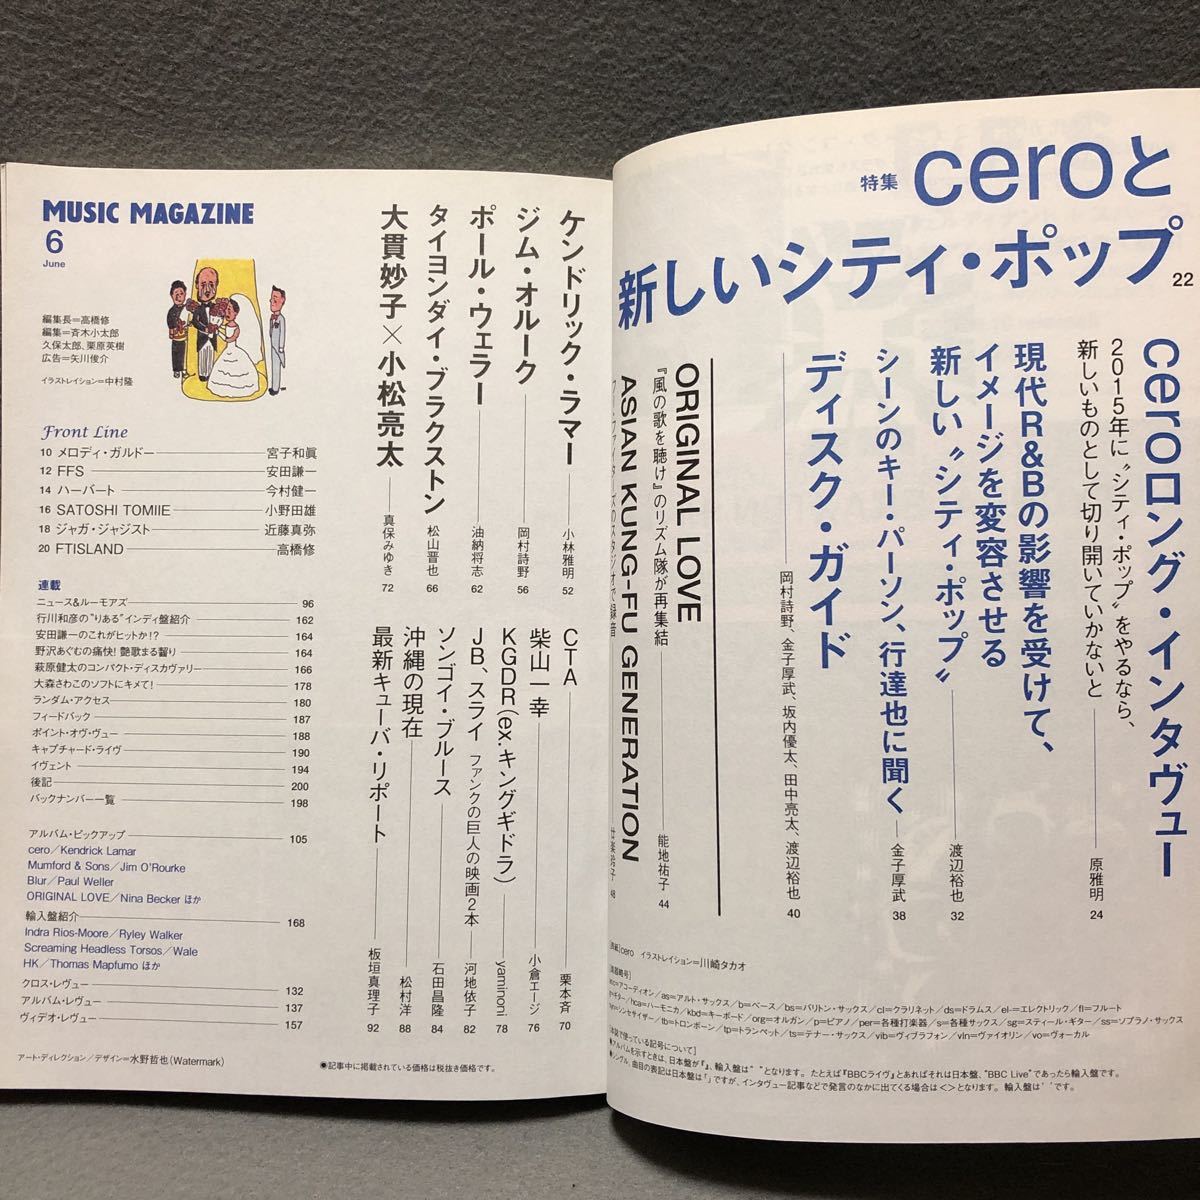 MUSIC MAGAZINE
6
June
編集長=高橋修
編集=斉木小太郎
久保太郎、栗原英樹
広告=矢川俊介
イラストレイション=中村隆
Front Line
10 メロディ・ガルドー 宮子和眞
12 FFS 安田謙一
14 ハーバート 今村健一
16 SATOSHI TOMIIE 小野田雄
18 ジャガ・ジャジスト 近藤真弥
20 FTISLAND 高橋修
連載
ニュース&ルーモアズ 96
行川和彦の“りある”インディ盤紹介 162
安田謙一のこれがヒットか!? 164
野沢あぐむの痛快! 艶歌まる齧り 164
萩原健太のコンパクト・ディスカヴァリー 166
大森さわこのソフトにキメて! 178
ランダム・アクセス 180
フィードバック 187
ポイント・オヴ・ヴュー 188
キャプチャード・ライヴ 190
イヴェント 194
後記 200
バックナンバー一覧 198
アルバム・ピックアップ 105
cero/Kendrick Lamar
Mumford & Sons/Jim O'Rourke
Blur/Paul Weller
ORIGINAL LOVE/Nina Becker ほか
輸入盤紹介 168
Indra Rios-Moore/Ryley Walker
Screaming Headless Torsos/Wale
HK/Thomas Mapfumo ほか
クロス・レヴュー 132
アルバム・レヴュー 137
ヴィデオ・レヴュー 157
アート・ディレクション/デザイン=水野哲也(Watermark)
ケンドリック・ラマー 小林雅明 52
ジム・オルーク 岡村詩野 56
ポール・ウェラー 油納将志 62
タイヨンダイ・ブラクストン 松山晋也 66
大貫妙子×小松亮太 真保みゆき 72
CTA 栗本斉 70
柴山一幸 小倉エージ 76
KGDR(ex.キングギドラ) yaminoni 78
JB、スライ ファンクの巨人の映画2本 河地依子 82
ソンゴイ・ブルース 石田昌隆 84
沖縄の現在 松村洋 88
最新キューバ・リポート 板垣真理子 92
●記事中に掲載されている価格は税抜き価格です。
特集 ceroと
新しいシティ・ポップ 22
ceroロング・インタヴュー
2015年に“シティ・ポップ”をやるなら、
新しいものとして切り開いていかないと 原雅明 24
現代R&Bの影響を受けて、
イメージを変容させる
新しい“シティ・ポップ” 渡辺裕也 32
シーンのキー・パーソン、行達也に聞く 金子厚武 38
ディスク・ガイド
岡村詩野、金子厚武、坂内優太、田中亮太、渡辺裕也 40
ORIGINAL LOVE
『風の歌を聴け』のリズム隊が再集結 能地祐子 44
ASIAN KUNG-FU GENERATION
48
cero イラストレイション=川崎タカオ
アコーディオン/as=アルト・サックス/b=ベース/bs=バリトン・サックス/cl=クラリネット/ds=ドラムス/el-=エレクトリック/fl=フルート
ギター/hca=ハーモニカ/kbd=キーボード/org=オルガン/p=ピアノ/per=各種打楽器/s=各種サックス/sg=スティール・ギター/ss=ソプラノ・サックス
シンセサイザー/tb=トロンボーン/tp=トランペット/ts=テナー・サックス/vib=ヴィブラフォン/vln=ヴァイオリン/vo=ヴォーカル
本誌で使っている記号について]
●アルバムを示すときは、日本盤が『 』、輸入盤は“ ”となります。たとえば『BBCライヴ』とあればそれは日本盤、“BBC Live”であったら輸入盤です。
●シングル、曲目の表記は日本盤は「 」ですが、インタヴュー記事などで発言のなかに出てくる場合は< >となります。輸入盤は‘ ’です。